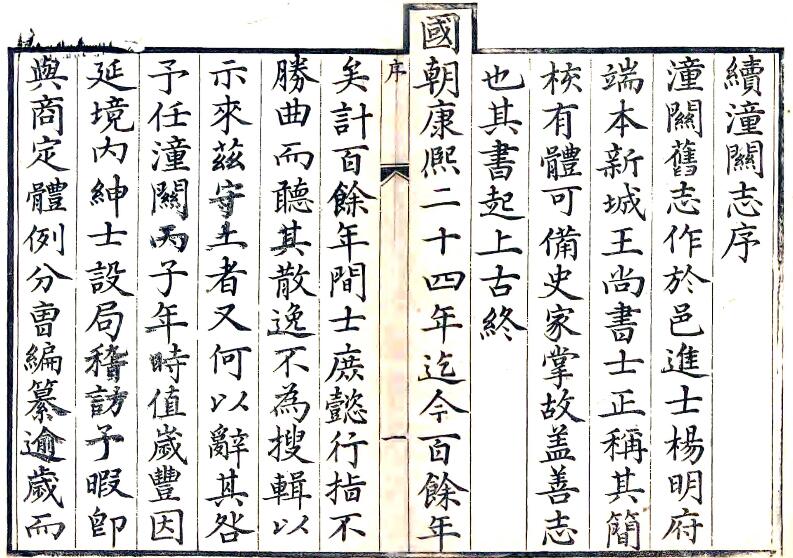 續潼關志序
潼關舊志作於邑進士楊明府
端本新城王尚書士正稱其簡
核有體可備史家掌故盖善志
也其書起上古終
國朝康熙二十四年迄今百餘年
序
一
矣計百餘年間士庶懿行指不
勝曲而聽其散逸不為搜輯以
示來茲守土者又何以辭其咎
予任潼關丙子年時值歲豐因
延境內紳士設局稽訪予暇卽
與商定體例分曹編纂逾歲而